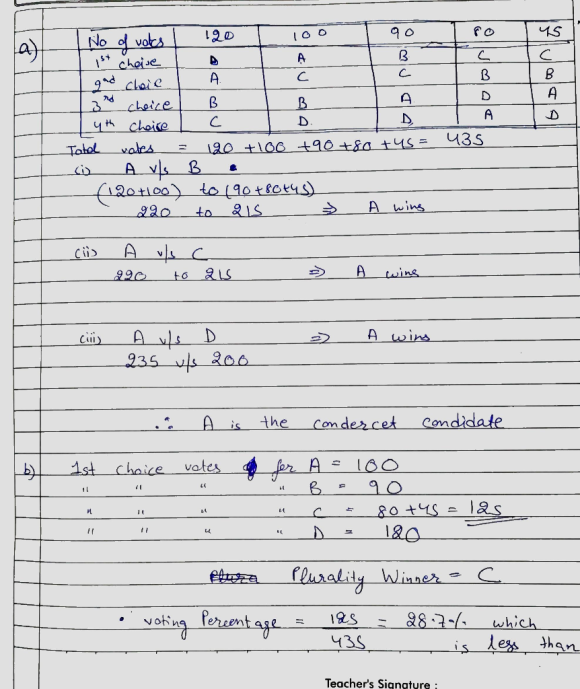 a)
No of votes 120 100 90 80 45
1st choise D A B C C
2nd choic A C C B B
3rd choice B B A D A
4th choise C D D A D
Total votes = 120 + 100 + 90 + 80 + 45 = 435
(i) A v/s B
(120+100) to (90+80+45)
220 to 215 ⇒ A wins
(ii) A v/s C
220 to 215 ⇒ A wins
(iii) A v/s D ⇒ A wins
235 v/s 200
∴ A is the condercet candidate
b) 1st choice votes for A = 100
" " " " B = 90
" " " " C = 80 + 45 = 125
" " " " D = 120
Plurality Winner = C
• voting Percentage = 125/435 = 28.7% which
is less than
Teacher's Signature :